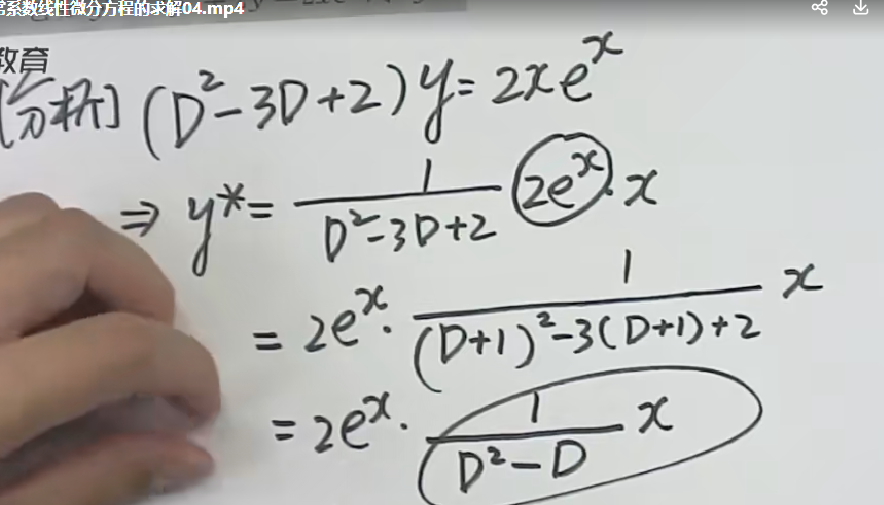 常系数线性微分方程的求解04.mp4
教育
[分析] (D²-3D+2)y=2xeˣ
⇒ y*= 1/(D²-3D+2) 2eˣ·x
= 2eˣ· 1/((D+1)²-3(D+1)+2) x
= 2eˣ· 1/(D²-D) x